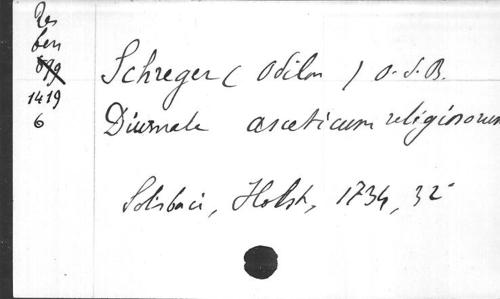 Res
ben
1419
6
Schreger (Odilon) O.S.B.
Diurnale asceticum religiosorum
Solisbaci, Holst, 1734, 32°